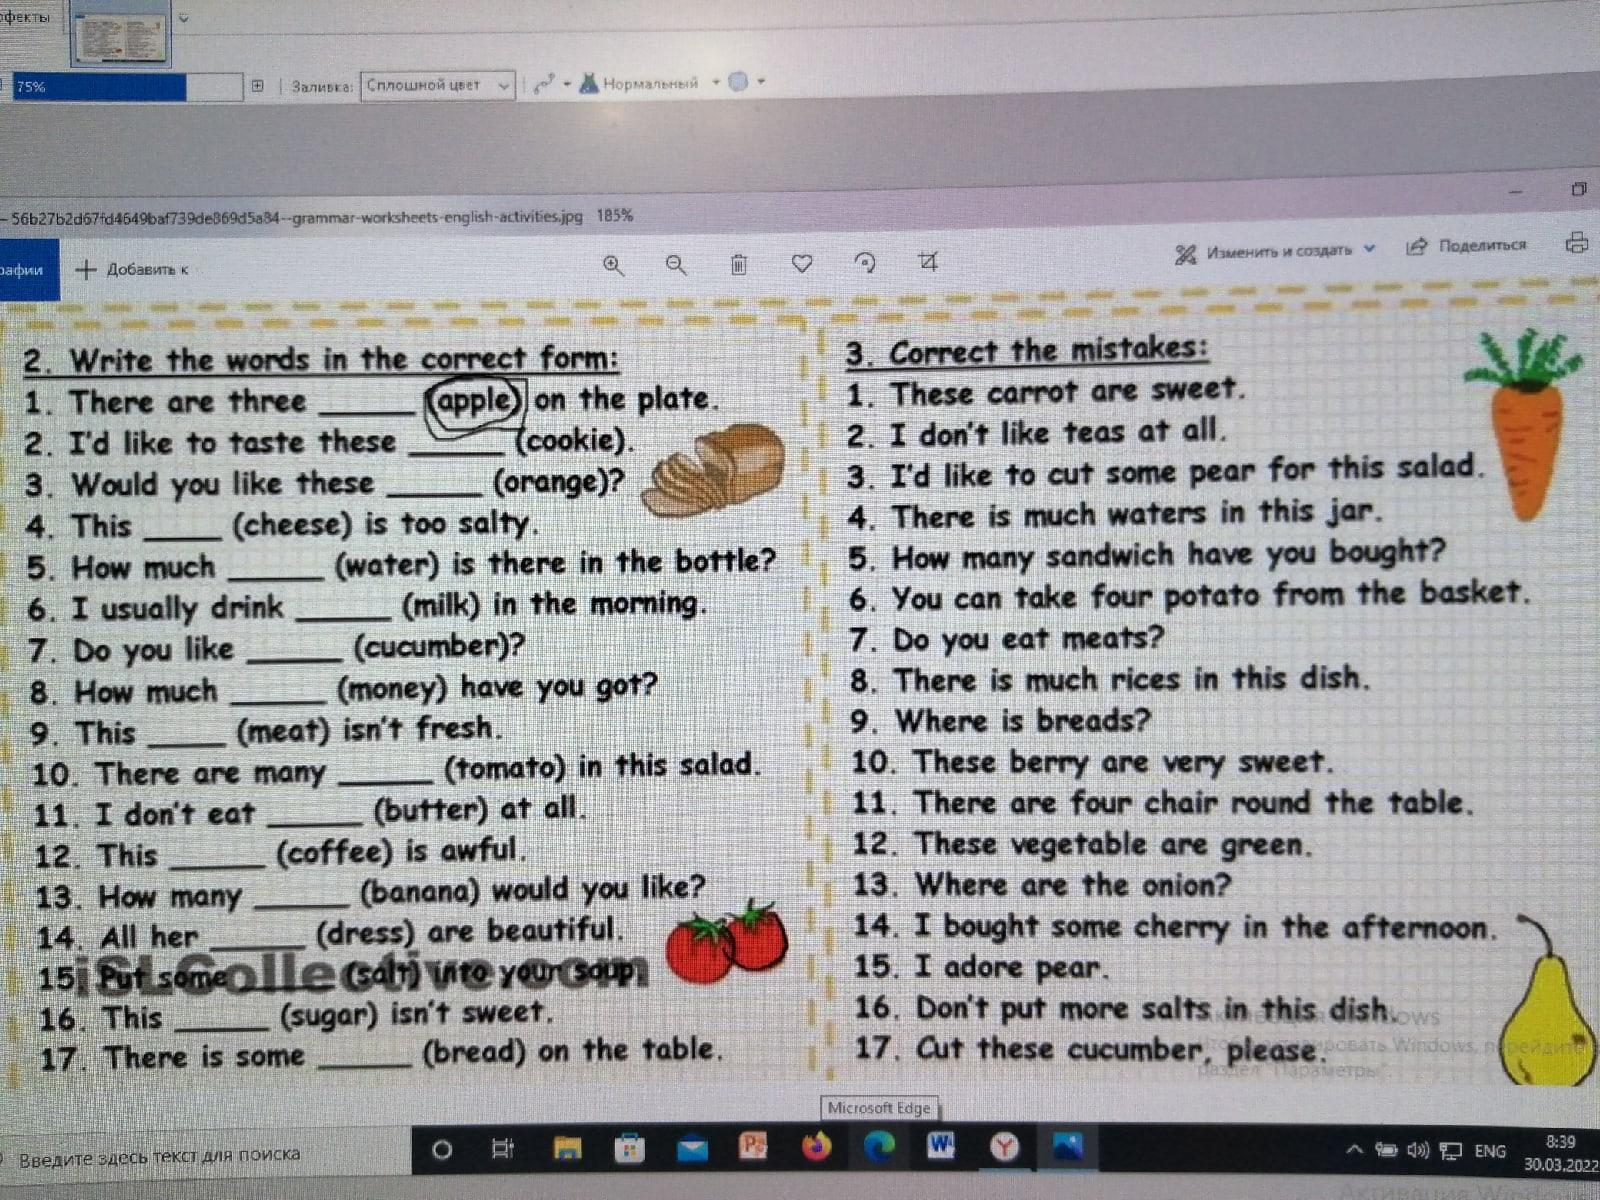 фекты
75%
Заливка: Сплошной цвет
Нормальный
56b27b2d67fd4649baf739de869d5a84--grammar-worksheets-english-activities.jpg 185%
рафии
Добавить к
Изменить и создать
Поделиться
2. Write the words in the correct form:
1. There are three ______ (apple) on the plate.
2. I'd like to taste these ______ (cookie).
3. Would you like these ______ (orange)?
4. This _____ (cheese) is too salty.
5. How much ______ (water) is there in the bottle?
6. I usually drink ______ (milk) in the morning.
7. Do you like ______ (cucumber)?
8. How much ______ (money) have you got?
9. This _____ (meat) isn't fresh.
10. There are many ______ (tomato) in this salad.
11. I don't eat ______ (butter) at all.
12. This ______ (coffee) is awful.
13. How many ______ (banana) would you like?
14. All her ______ (dress) are beautiful.
15. Put some ______ (salt) into your soup.
iSLCollective.com
16. This ______ (sugar) isn't sweet.
17. There is some ______ (bread) on the table.
3. Correct the mistakes:
1. These carrot are sweet.
2. I don't like teas at all.
3. I'd like to cut some pear for this salad.
4. There is much waters in this jar.
5. How many sandwich have you bought?
6. You can take four potato from the basket.
7. Do you eat meats?
8. There is much rices in this dish.
9. Where is breads?
10. These berry are very sweet.
11. There are four chair round the table.
12. These vegetable are green.
13. Where are the onion?
14. I bought some cherry in the afternoon.
15. I adore pear.
16. Don't put more salts in this dish.
17. Cut these cucumber, please.
Windows, перейдите
раздел "Параметры".
Microsoft Edge
Введите здесь текст для поиска
ENG
8:39
30.03.2022